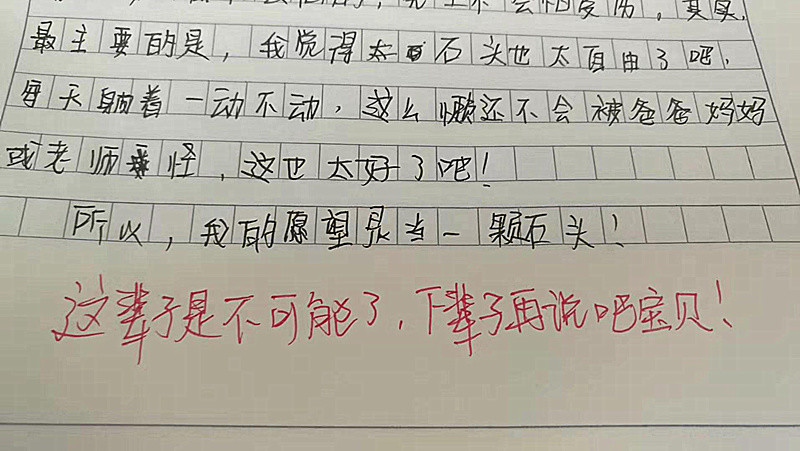 不会怕受伤，其实，
最主要的是，我觉得石头也太自由了吧，
每天躺着一动不动，这么懒还不会被爸爸妈妈
或老师责怪，这也太好了吧！
所以，我的愿望是当一颗石头！
这辈子是不可能了，下辈子再说吧宝贝！